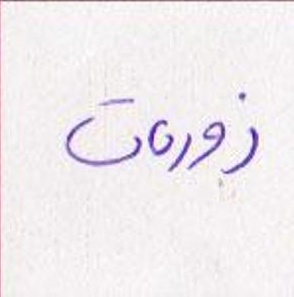 زورمات